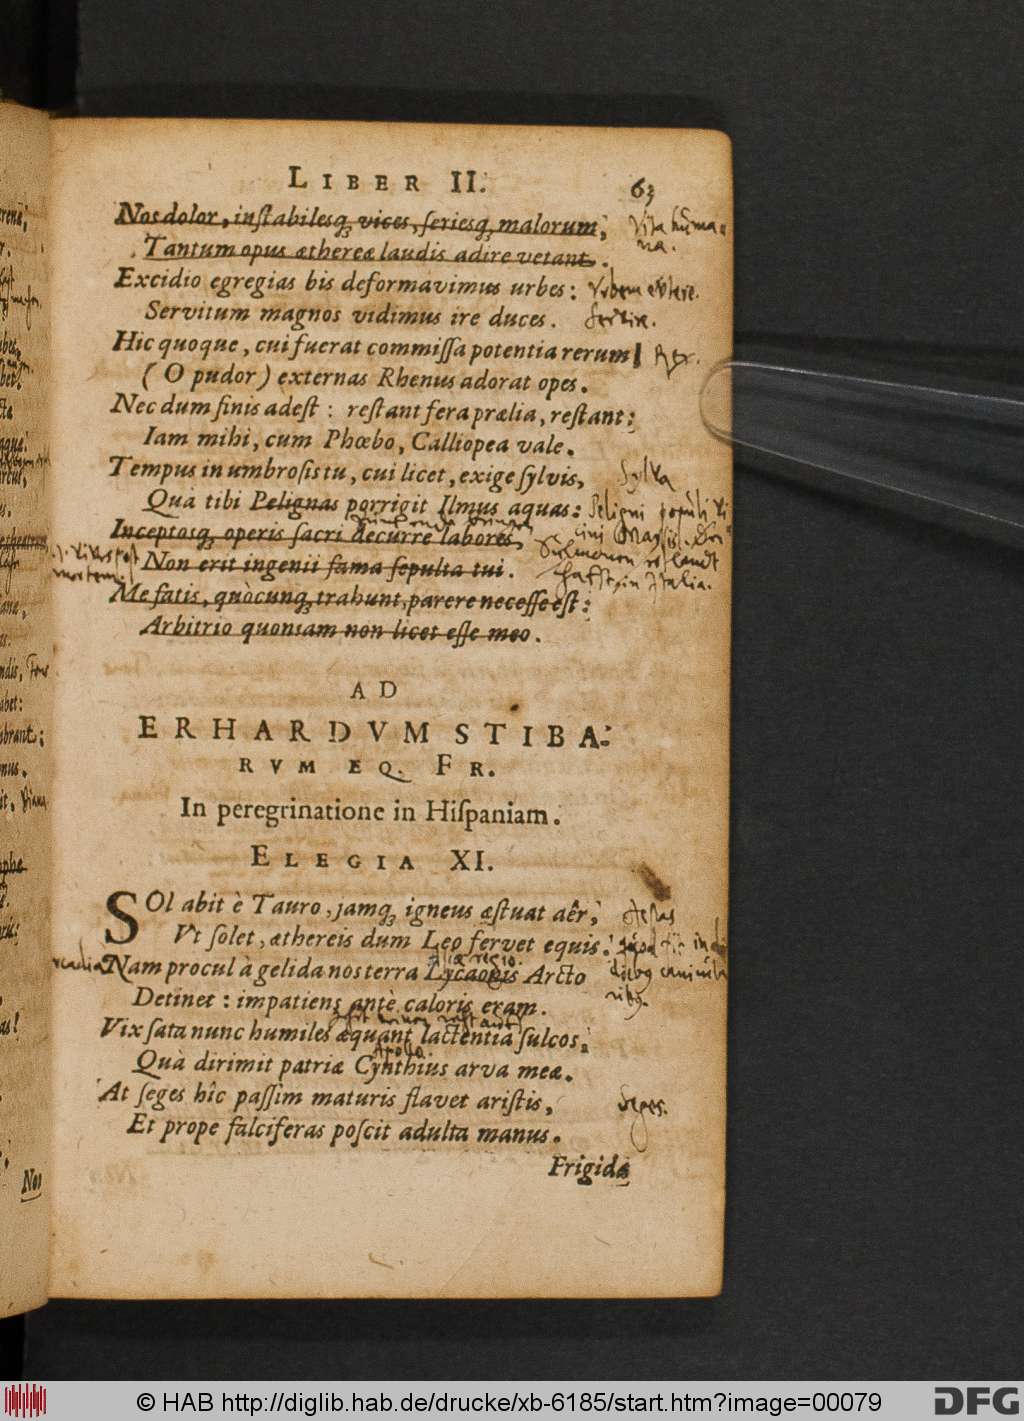 LIBER II. 63
Nos dolor, inſtabilesq; vices, ſeriesq; malorum, Vita huma=
Tantum opus æthereæ laudis adire vetant. na.
Excidio egregias bis deformavimus urbes: Urbem evertere.
Servitum magnos vidimus ire duces. Servire.
Hic quoque, cui fuerat commiſſa potentia rerum Rex.
(O pudor) externas Rhenus adorat opes.
Nec dum finis adeſt: reſtant fera prælia, reſtant:
Iam mihi, cum Phœbo, Calliopea vale.
Tempus in umbroſis tu, cui licet, exige ſylvis, Sylva
Quà tibi Pelignas porrigit Ilmus aquas: Peligni populi vi
Inceptosq; operis ſacri decurre labores, cini
Non erit ingenii fama ſepulta tui.
in Italia.
Me fatis, quòcunq; trahunt, parere neceſſe eſt:
Arbitrio quoniam non licet eſſe meo.
AD
ERHARDVM STIBA:
RVM EQ. FR.
In peregrinatione in Hiſpaniam.
ELEGIA XI.
SOl abit è Tauro, jamq; igneus æſtuat aêr, Æstas
Vt ſolet, æthereis dum Leo fervet equis:
Nam procul à gelida nos terra Lycaonis Arcto
Detinet: impatiens antè caloris eram.
Vix ſata nunc humiles æquant lactentia ſulcos,
Apollo
Quà dirimit patriæ Cynthius arva meæ.
At ſeges hîc paſſim maturis flavet ariſtis, Seges.
Et prope falciferas poſcit adulta manus.
Frigida
Nos
© HAB http://diglib.hab.de/drucke/xb-6185/start.htm?image=00079 DFG